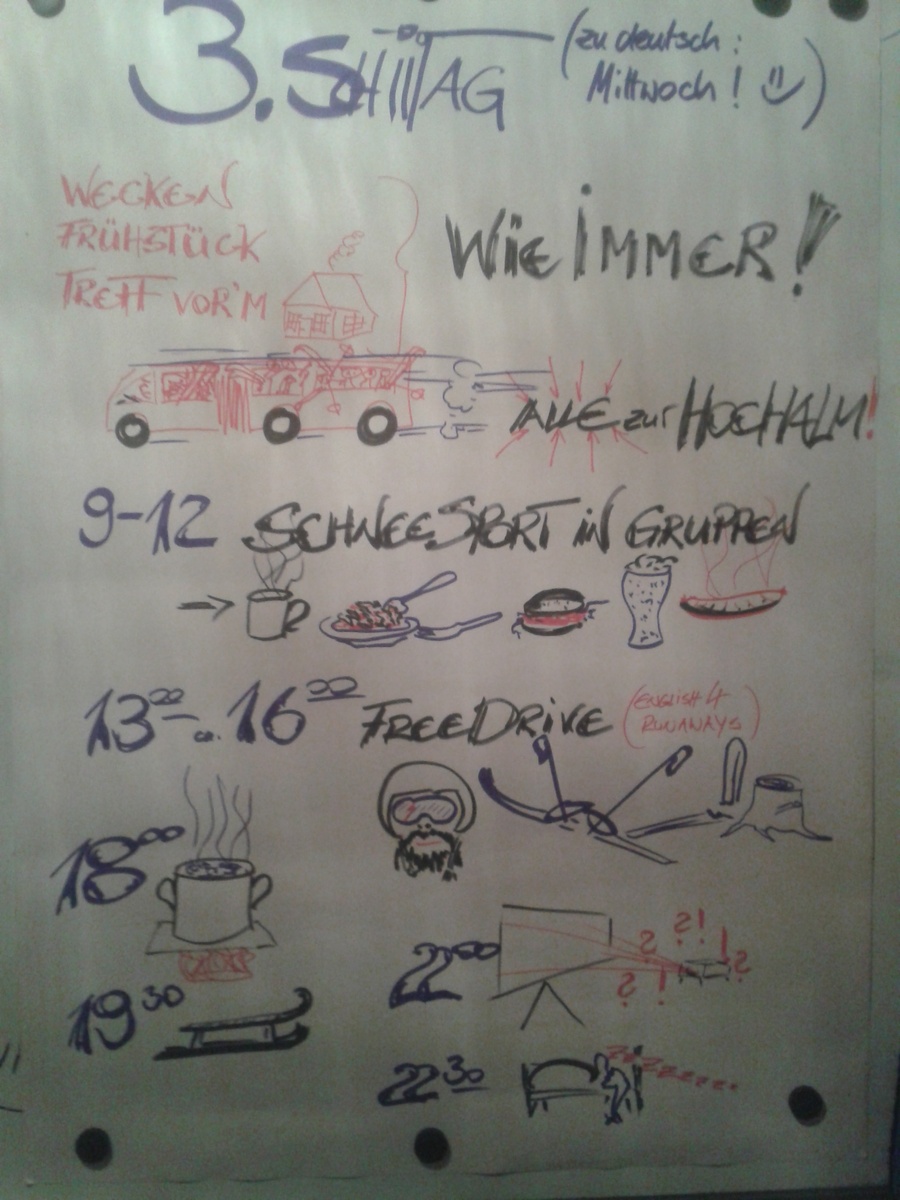 3. SCHITAG (zu deutsch:
Mittwoch! )
WECKEN
FRÜHSTÜCK
TREFF VOR'M
WiE IMMER!
ALLE zur HOCHALM!
9-12 SCHNEESPORT iN GRUPPEN
13⁰⁰- ca. 16⁰⁰ FREEDRiVE (ENGLISH 4
RUNAWAYS)
18⁰⁰
19³⁰
? ?! ! ? ? !
22³⁰
zzzzzzz